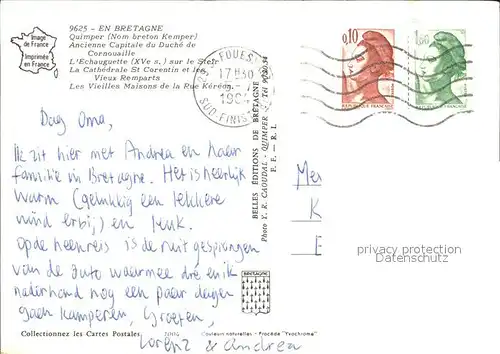 9625 - EN BRETAGNE
Quimper (Nom breton Kemper)
Ancienne Capitale du Duché de
Cornouaille
L'Echauguette (XVe s.) sur le Steir
La Cathédrale St Corentin et les
Vieux Remparts
Les Vieilles Maisons de la Rue Kéréon.
Image
de France
Imprimée
en France
FOUES
17 H 30
1984
SUD-FINIS
0,10
1,60
REPUBLIQUE FRANÇAISE
Dag Oma,
Ik zit hier met Andrea en haar
familie in Bretagne. Het is heerlijk
warm (gelukkig een lekkere
wind erbij) en leuk.
Op de heenreis is de ruit gesprongen
van de auto waarmee drie en ik
naderhand nog een paar dagen
gaan kamperen. Groeten,
Lorenz & Andrea
BELLES ÉDITIONS DE BRETAGNE
Photo Y. R. CAOUDAL - QUIMPER
F. F. - R. I.
BRETAGNE
K
privacy protection
Datenschutz
Collectionnez les Cartes Postales
Couleurs naturelles - Procédé "Yvochrome"